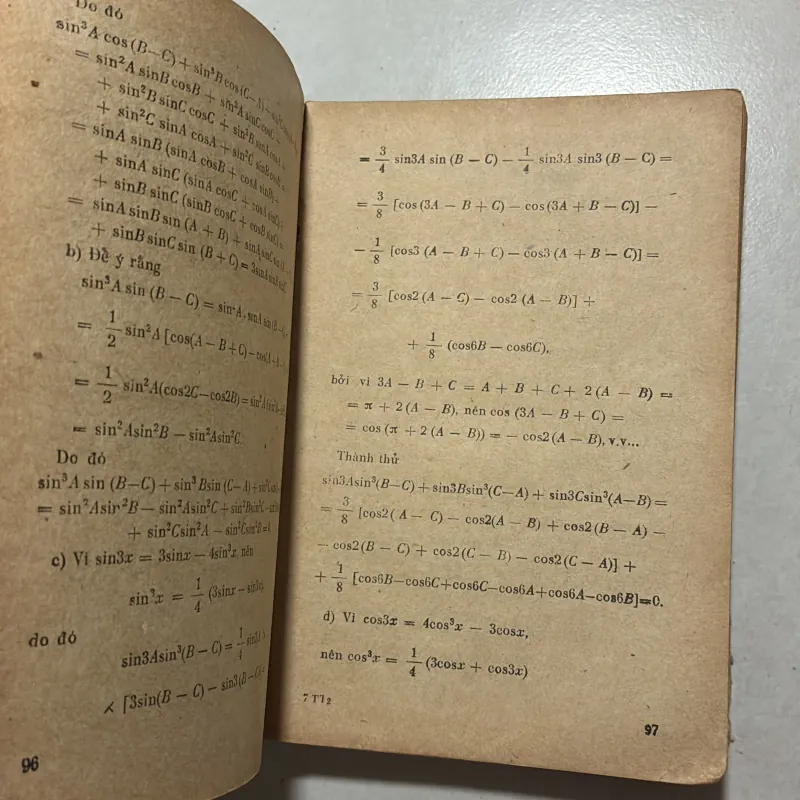 Do đó
sin³A cos (B—C) + sin³B cos (C—A) +
= sin²A sinB cosB + sin²A sinC cosC +
+ sin²B sinC cosC + sin²B sinA cosA +
+ sin²C sinA cosA + sin²C sinB cosB =
= sinA sinB (sinA cosB + cosA sinB) +
+ sinA sinC (sinA cosC + cosA sinC) +
+ sinB sinC (sinB cosC + cosB sinC) =
= sinA sinB sin (A + B) + sinA sinC sin
+ sinB sinC sin (B + C) = 3sinA sinB sinC.
b) Để ý rằng
sin³A sin (B — C) = sin²A. sinA sin (B — C) =
= 1/2 sin²A [cos(A — B+C) — cos(A+B —
= 1/2 sin²A(cos2C—cos2B) = sin²A
= sin²Asin²B — sin²Asin²C.
Do đó
sin³A sin (B—C) + sin³Bsin (C—A) +
= sin²Asin²B — sin²Asin²C + sin²Bsin²C —
+ sin²Csin²A — sin²Csin²B = 0.
c) Vì sin3x = 3sinx — 4sin³x, nên
sin³x = 1/4 (3sinx — sin3x),
do đó
sin3Asin³(B — C) = 1/4 sin3A ×
× [3sin(B — C) — sin3(B—C)] =
96
= 3/4 sin3A sin (B — C) — 1/4 sin3A sin3 (B — C) =
= 3/8 [cos (3A — B + C) — cos (3A + B — C)] —
— 1/8 [cos3 (A — B + C) — cos3 (A + B — C)] =
= 3/8 [cos2 (A — C) — cos2 (A — B)] +
+ 1/8 (cos6B — cos6C),
bởi vì 3A — B + C = A + B + C + 2 (A — B) =
= π + 2 (A — B), nên cos (3A — B + C) =
= cos (π + 2 (A — B)) = — cos2 (A — B), v.v...
Thành thử
sin3Asin³(B—C) + sin3Bsin³(C—A) + sin3Csin³(A—B) =
= 3/8 [cos2 (A — C) — cos2(A — B) + cos2 (B — A) —
— cos2 (B — C) + cos2 (C — B) — cos2 (C — A)] +
+ 1/8 [cos6B—cos6C+cos6C—cos6A+cos6A—cos6B]=0.
d) Vì cos3x = 4cos³x — 3cosx,
nên cos³x = 1/4 (3cosx + cos3x)
7 T12
97